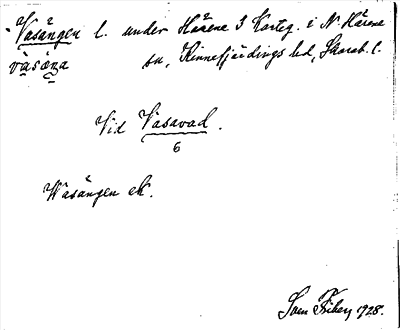 Vasängen l. under Härene 3 Karteg. i N. Härene
väsäŋa sn, Kinnefjärdings hd, Skarab. l.
Vid Väsavad.
6
Wäsängen ek.
Sven Friberg 1928.